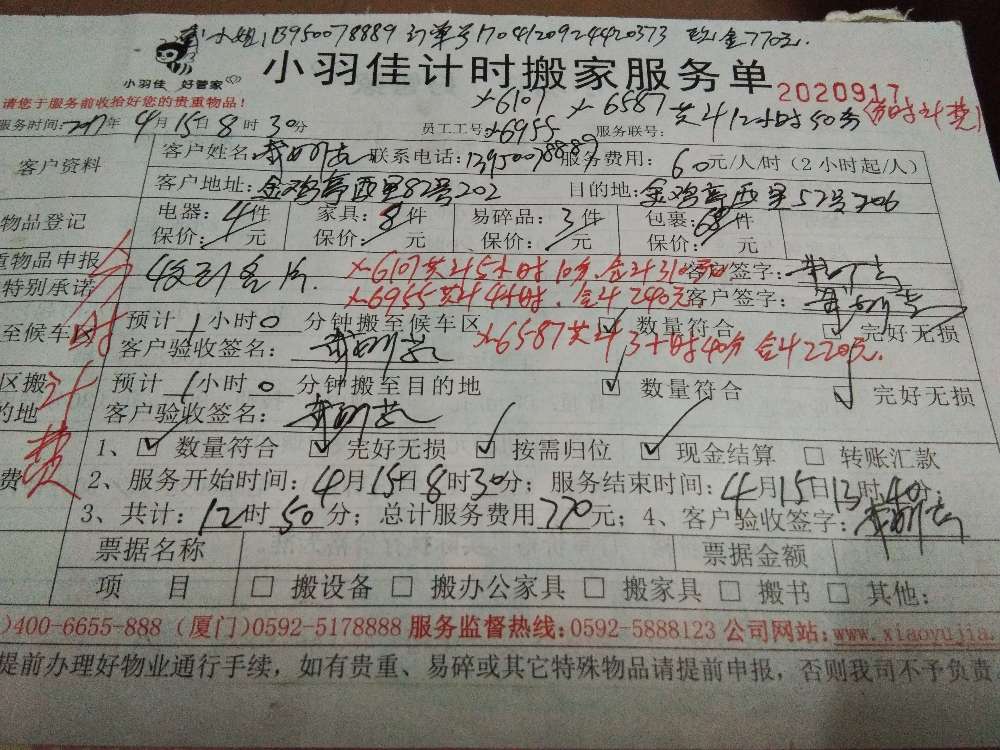 小姐 13950078889 订单号1704120924420373 现金770元.
小羽佳 好管家
小羽佳计时搬家服务单
2020917
请您于服务前收拾好您的贵重物品!
X-6107 X-6587 共计12小时50分(分时计费)
服务时间:2017年4月15日8时30分 员工工号:X-6955 服务联号:
客户资料
客户姓名: 联系电话:13950078889 服务费用:60元/人/时(2小时起/人)
客户地址:金鸡亭西里82号202 目的地:金鸡亭西里57号706
物品登记
电器:4件 家具:8件 易碎品:3件 包裹:68件
保价: 元 保价: 元 保价: 元 保价: 元
重物品申报
特别承诺
收到名片
X-6107共计5小时10分.合计310元 客户签字:
X-6955共计4小时.合计240元 客户签字:
分时计费
至候车区
预计1小时0分钟搬至候车区 数量符合 完好无损
客户验收签名: X-6587共计3小时40分 合计220元.
区搬
的地
预计1小时0分钟搬至目的地 数量符合 完好无损
客户验收签名:
费
1、 数量符合 完好无损 按需归位 现金结算 转账汇款
2、服务开始时间:4月15日8时30分;服务结束时间:4月15日13时40分
3、共计:12时50分;总计服务费用770元;4、客户验收签字:
票据名称 票据金额
项 目 搬设备 搬办公家具 搬家具 搬书 其他:
)400-6655-888 (厦门)0592-5178888 服务监督热线:0592-5888123 公司网站:www.xiaoyujia.
提前办理好物业通行手续,如有贵重、易碎或其它特殊物品请提前申报,否则我司不予负责